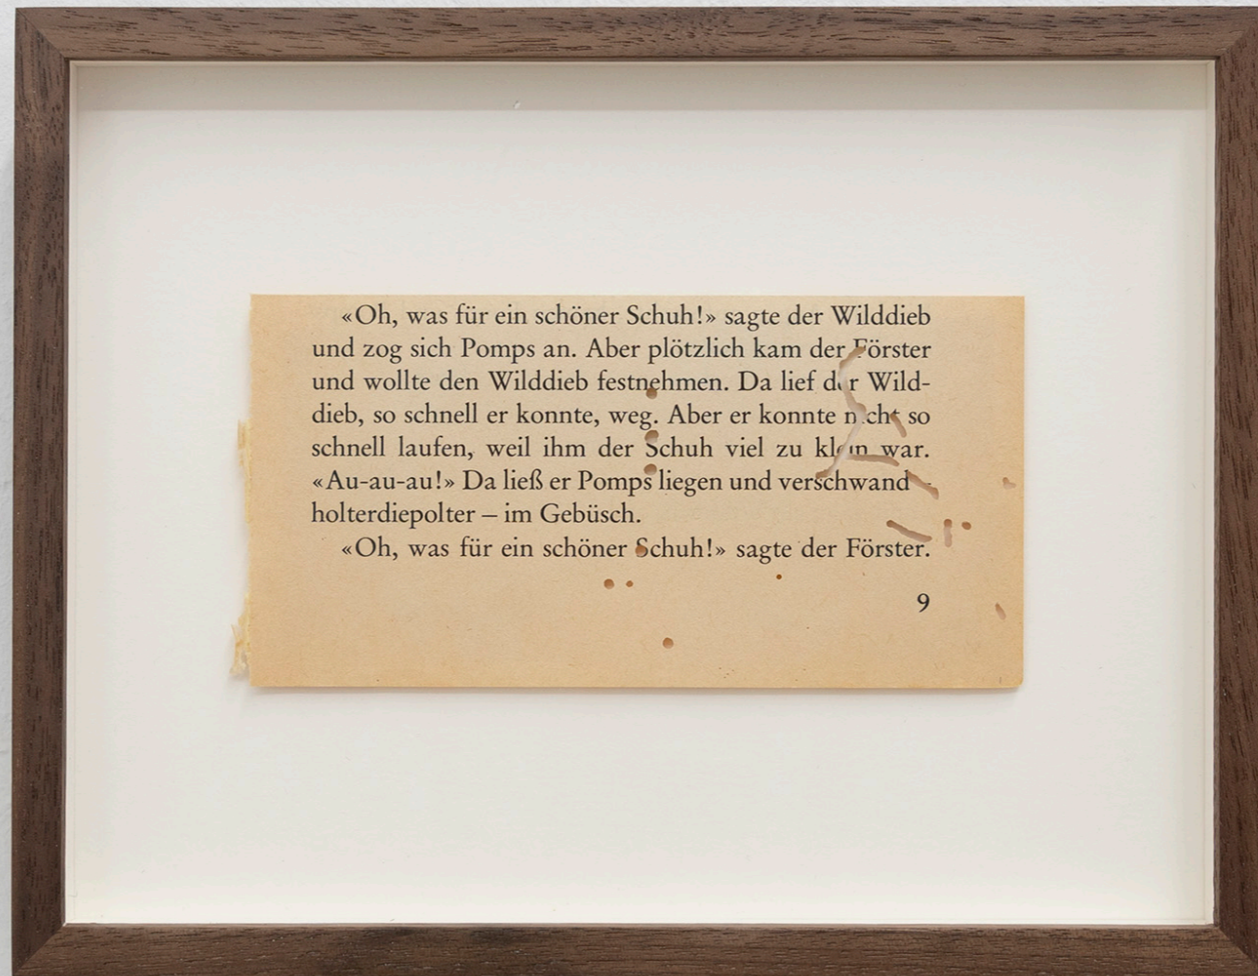 «Oh, was für ein schöner Schuh!» sagte der Wilddieb
und zog sich Pomps an. Aber plötzlich kam der Förster
und wollte den Wilddieb festnehmen. Da lief der Wild-
dieb, so schnell er konnte, weg. Aber er konnte nicht so
schnell laufen, weil ihm der Schuh viel zu klein war.
«Au-au-au!» Da ließ er Pomps liegen und verschwand –
holterdiepolter – im Gebüsch.
«Oh, was für ein schöner Schuh!» sagte der Förster.
9